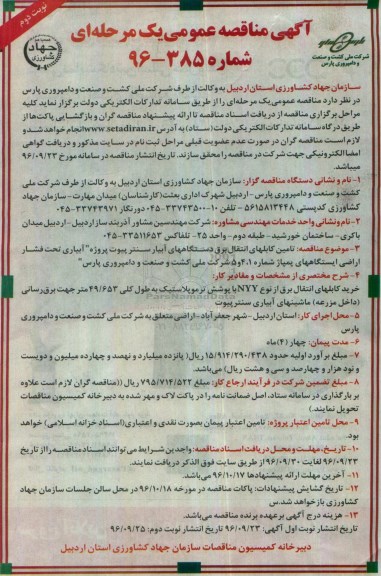 نوبت دوم
آگهی مناقصه عمومی یک مرحله‌ای
شماره ۳۸۵-۹۶
جهاد کشاورزی
شرکت ملی کشت و صنعت و دامپروری پارس
سازمان جهاد کشاورزی استان اردبیل به وکالت از طرف شرکت ملی کشت و صنعت و دامپروری پارس
در نظر دارد مناقصه عمومی یک مرحله‌ای را از طریق سامانه تدارکات الکترونیکی دولت برگزار نماید. کلیه
مراحل برگزاری مناقصه از دریافت اسناد مناقصه تا ارائه پیشنهاد مناقصه گران و بازگشایی پاکت‌ها از
طریق درگاه سامانه تدارکات الکترونیکی دولت (ستاد) به آدرس www.setadiran.ir انجام خواهد شد و
لازم است مناقصه گران در صورت عدم عضویت قبلی مراحل ثبت نام در سایت مذکور و دریافت گواهی
امضا الکترونیکی جهت شرکت در مناقصه را محقق سازند. تاریخ انتشار مناقصه در سامانه مورخ ۹۶/۰۹/۲۳
میباشد.
۱- نام و نشانی دستگاه مناقصه گزار: سازمان جهاد کشاورزی استان اردبیل به وکالت از طرف شرکت ملی
کشت و صنعت و دامپروری پارس - اردبیل شهرک اداری بعثت (کارشناسان) میدان مهارت - سازمان جهاد
کشاورزی کدپستی ۵۶۱۵۸۱۳۴۴۸ - تلفن ۱۰-۳۳۷۴۳۵۰۰-۰۴۵ دورنگار ۳۳۷۴۳۹۷۱-۰۴۵
۲- نام و نشانی واحد خدمات مهندسی مشاوره: شرکت مهندسین مشاور آذربند ساز اردبیل - اردبیل میدان
باکری - ساختمان خورشید - طبقه دوم - واحد ۲۵ - تلفاکس ۳۳۲۵۱۶۵۳-۰۴۵
۳- موضوع مناقصه: تامین کابلهای انتقال برق دستگاههای آبیار سنتر پیوت پروژه " آبیاری تحت فشار
اراضی ایستگاههای پمپاژ شماره ۴،۱ و ۵ شرکت ملی کشت و صنعت و دامپروری پارس"
۴- شرح مختصری از مشخصات و مقادیر کار:
خرید کابلهای انتقال برق از نوع NYY با پوشش ترموپلاستیک به طول کلی ۴۹/۶۵۳ متر جهت برق رسانی
(داخل مزرعه) ماشینهای آبیاری سنتر پیوت
۵- محل اجرای کار: استان اردبیل - شهر جعفرآباد - اراضی متعلق به شرکت ملی کشت و صنعت و دامپروری
پارس
۶- مدت پیمان: چهار (۴) ماه
۷- مبلغ برآورد اولیه حدود ۱۵/۹۱۴/۲۹۰/۴۳۸ ریال (پانزده میلیارد و نهصد و چهارده میلیون و دویست
و نود هزار و چهارصد و سی و هشت ریال) می‌باشد.
۸- مبلغ تضمین شرکت در فرآیند ارجاع کار: مبلغ ۷۹۵/۷۱۴/۵۲۲ ریال ((مناقصه گران لازم است علاوه
بر بارگذاری در سامانه ستاد، اصل ضمانت نامه را در پاکت لاک و مهر شده به دبیرخانه کمیسیون مناقصات
تحویل نمایند.)
۹- محل تامین اعتبار پروژه: تامین اعتبار پیمان بصورت نقدی و اعتباری (اسناد خزانه اسلامی) خواهد
بود.
۱۰- تاریخ، مهلت و محل دریافت اسناد مناقصه: واجدین شرایط می‌توانند اسناد مناقصه را از تاریخ
۹۶/۰۹/۲۳ لغایت ۹۶/۰۹/۳۰ از طریق سایت فوق الذکر دریافت نمایند.
۱۱- آخرین مهلت ارائه پیشنهادها ۹۶/۱۰/۱۷ می‌باشد.
۱۲- تاریخ گشایش پیشنهادات: پاکات مناقصه در مورخه ۹۶/۱۰/۱۸ در محل سالن جلسات سازمان جهاد
کشاورزی باز خواهد شد.
۱۳- هزینه درج آگهی برعهده برنده مناقصه می‌باشد.
تاریخ انتشار نوبت اول آگهی: ۹۶/۰۹/۲۳ تاریخ انتشار نوبت دوم: ۹۶/۰۹/۲۵
دبیرخانه کمیسیون مناقصات سازمان جهاد کشاورزی استان اردبیل